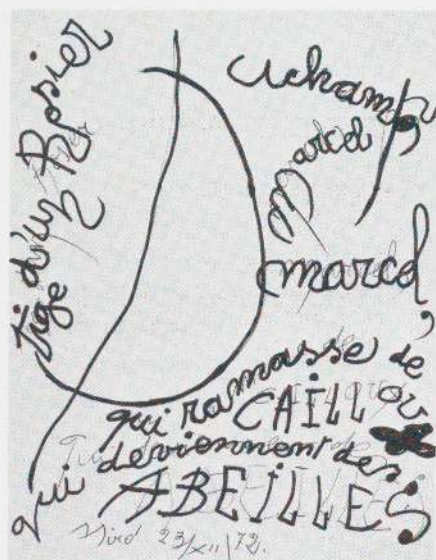 Tige d'un Rosier
D
uchamp,
Marcel
marcel,
qui ramasse de
CAILLOUX
qui deviennent des
ABEILLES
Miró 23/XII/72.